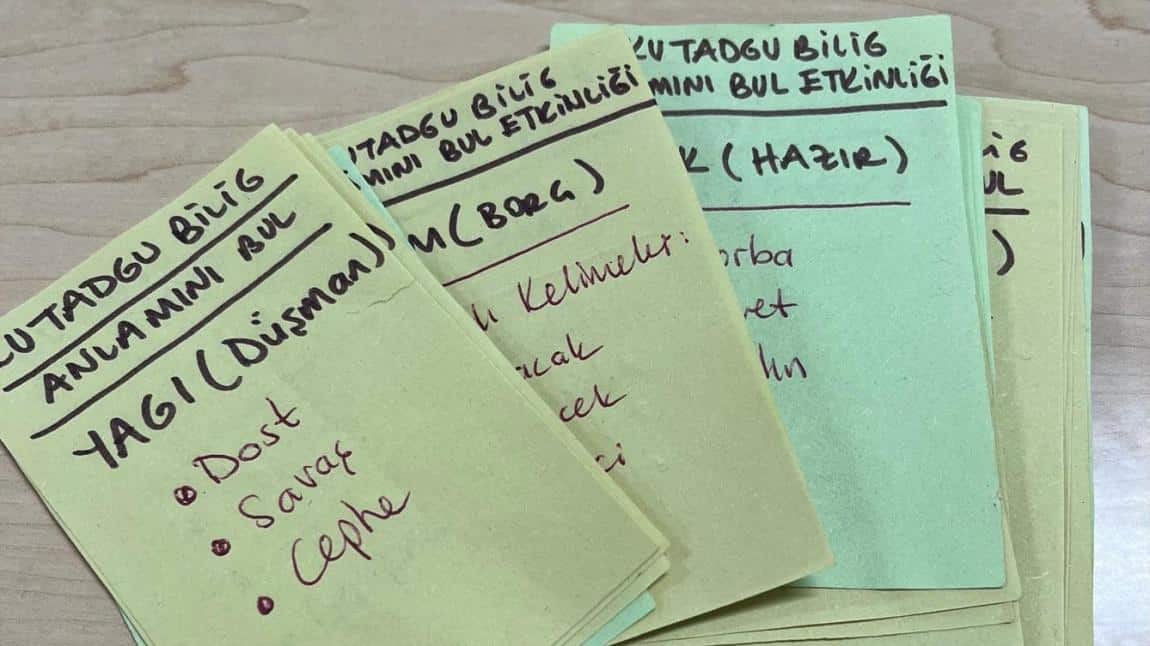 KUTADGU BİLİG
ANLAMINI BUL
YAGI (Düşman)
Dost
Savaş
Cephe
TADGU BİLİG
MINI BUL ETKİNLİĞİ
M (BORÇ)
Kelimeler:
UTADGU BİLİG
MINI BUL ETKİNLİĞİ
K (HAZIR)